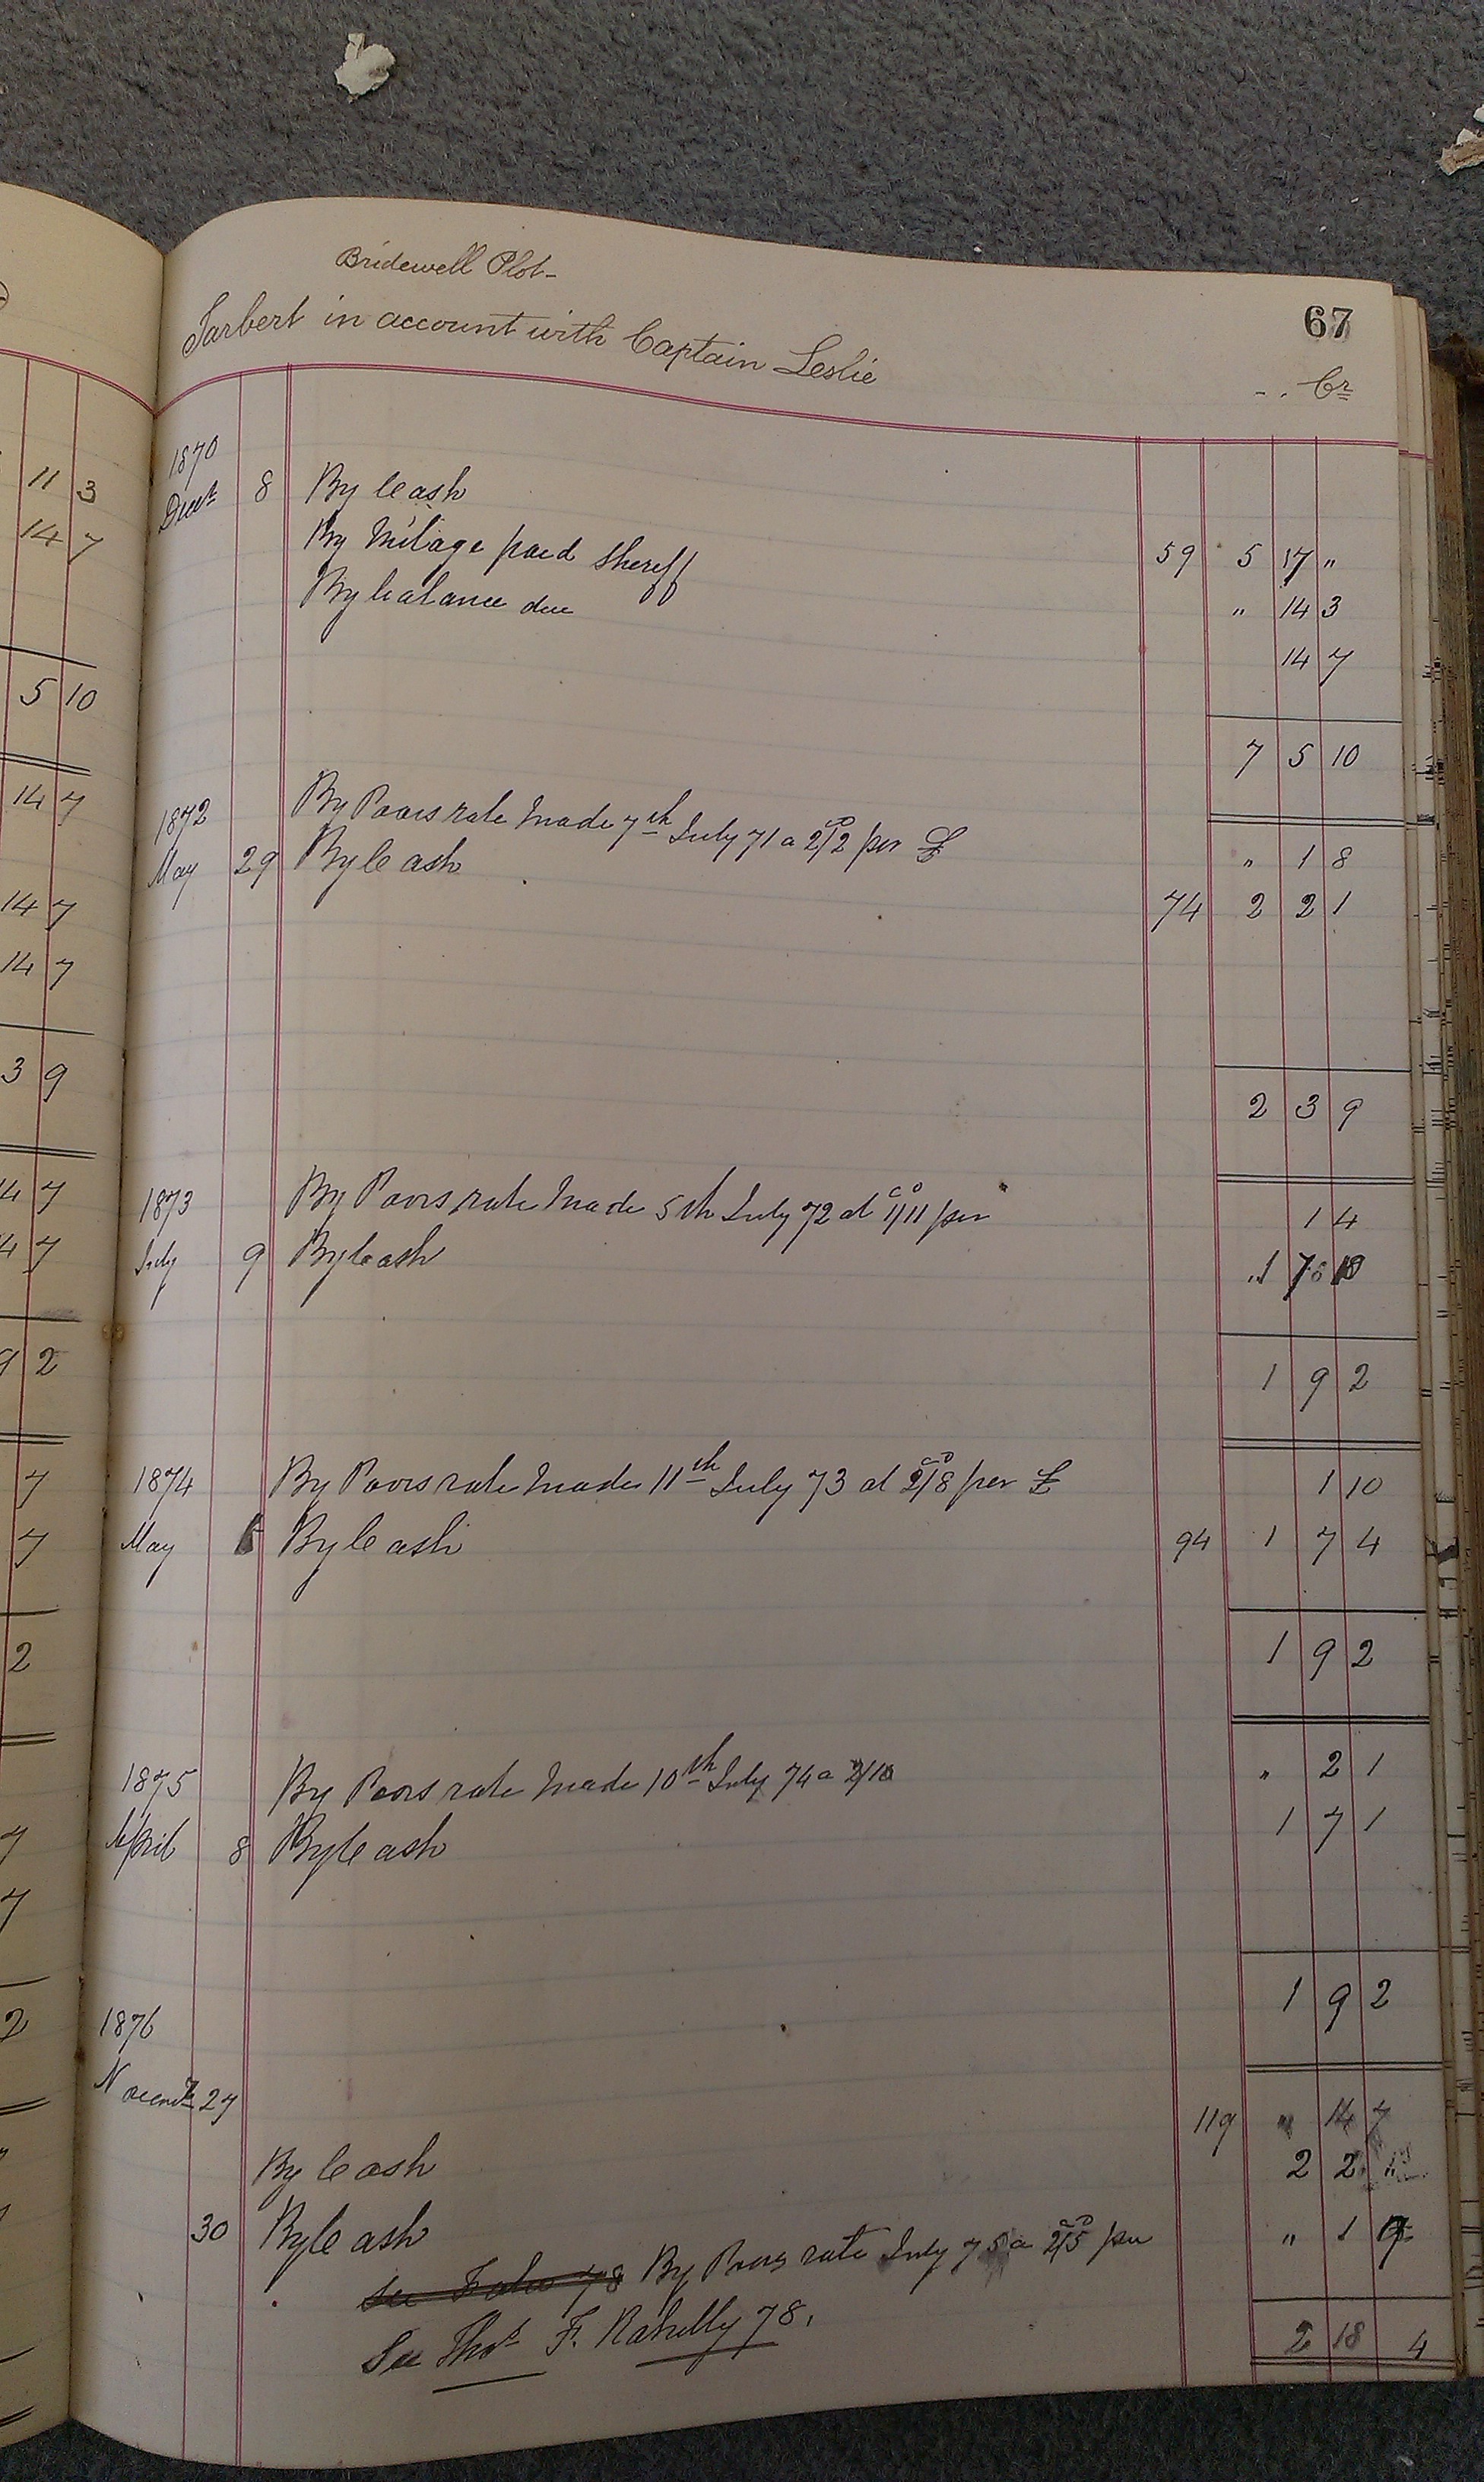 11 3
14 7
5 10
14 7
14 7
14 7
3 9
4 7
4 7
9 2
7
7
2
7
7
2
67
Bridewell Plot
Tarbert in account with Captain Leslie
Cr
1870
8 By Cash 59 5 17 "
By Milage paid Sheriff " 14 3
By balance due 14 7
7 5 10
1872 By Poors rate Made 7th July 71 a 2/2 per £ " 1 8
May 29 By Cash 74 2 2 1
2 3 9
1873 By Poors rate Made 5th July 72 at 1/11 per 1 4
July 9 By Cash 1 7 10
1 9 2
1874 By Poors rate Made 11th July 73 at 2/8 per £ 1 10
May By Cash 94 1 7 4
1 9 2
1875 By Poors rate Made 10th July 74 a 2/10 " 2 1
April 8 By Cash 1 7 1
1 9 2
1876
27 By Cash 119 " 14 7
30 By Cash 2 2 "
See Folio 78 By Poors rate July 75 a 2/5 per " 1 9
See Thos F. 78.
2 18 4